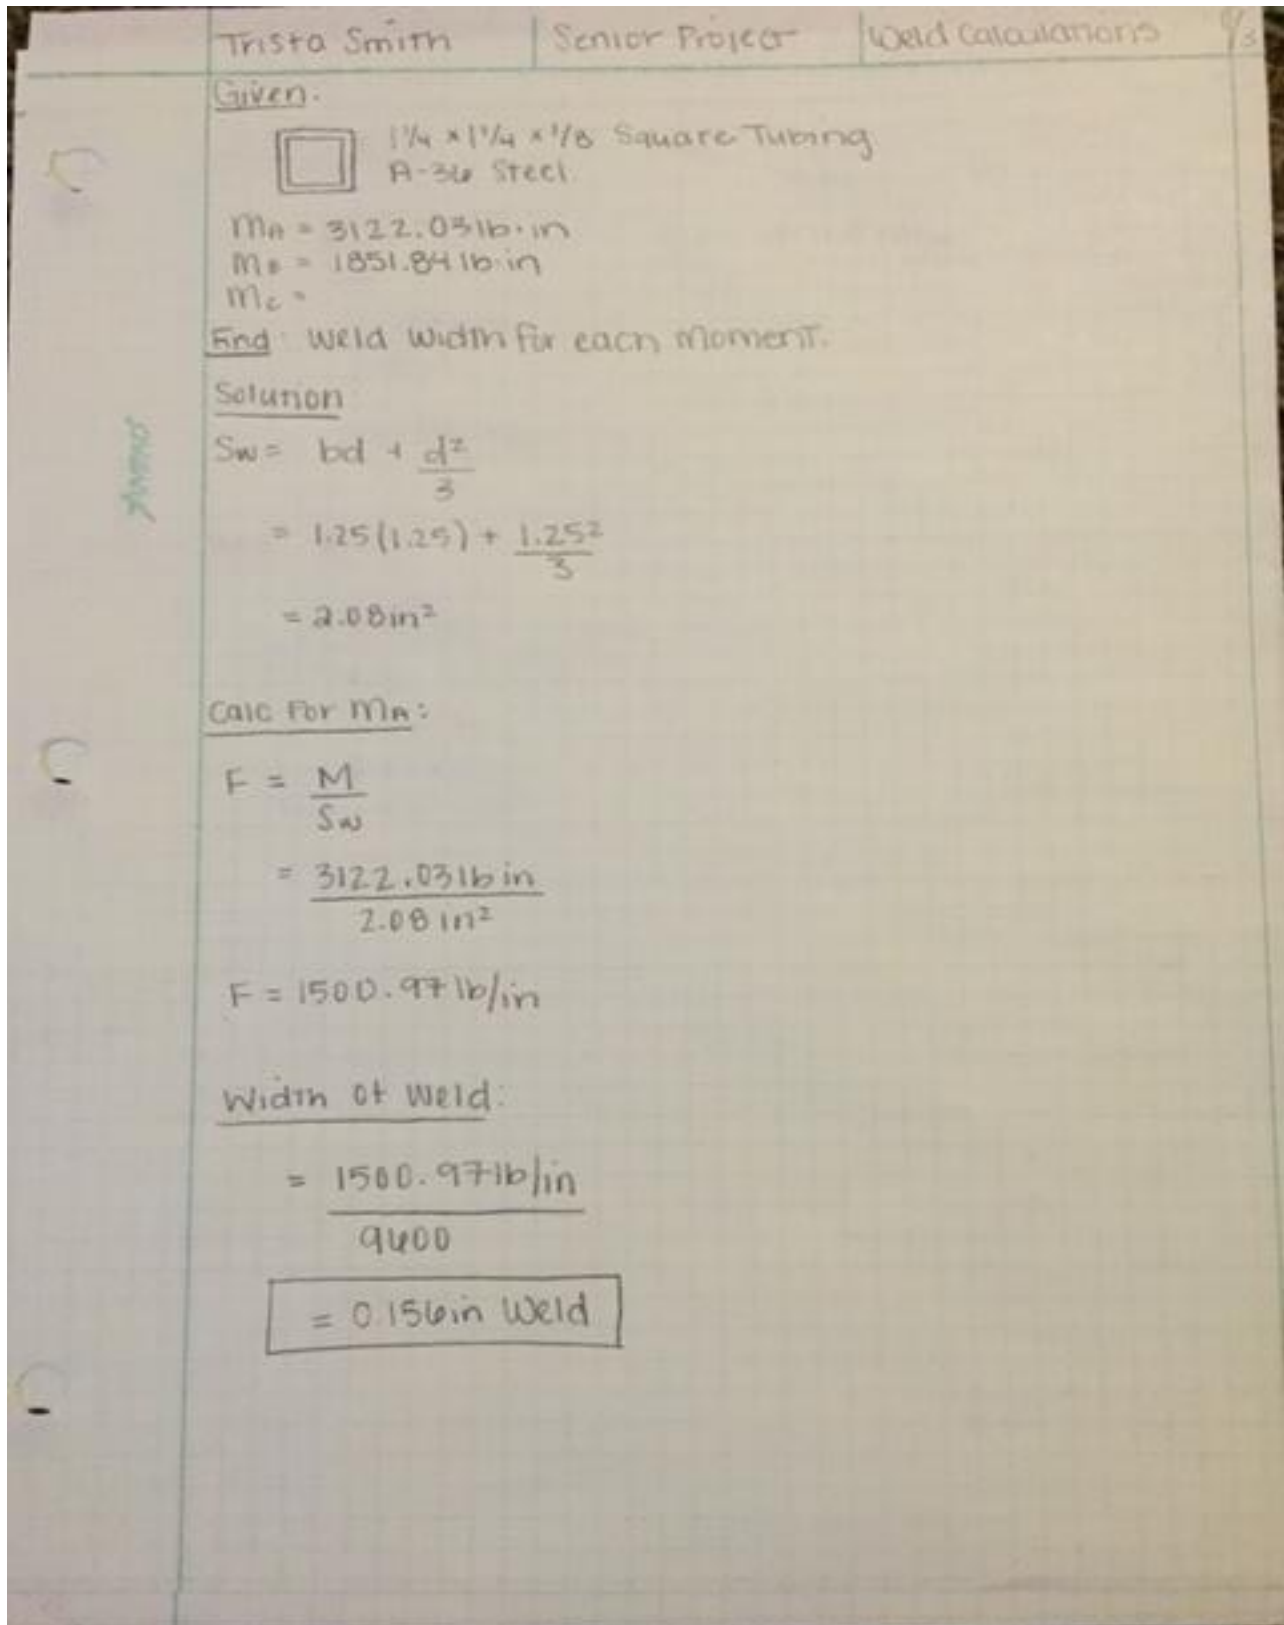 Trista Smith Senior Project Weld Calculations
Given.
1 1/4 x 1 1/4 x 1/8 Square Tubing
A-36 Steel.
MA = 3122.03 lb·in
MB = 1851.84 lb·in
Mc =
Find: Weld Width for each Moment.
Solution
Sw = bd + d²/3
= 1.25(1.25) + 1.25²/3
= 2.08 in²
Calc For MA:
F = M/Sw
= 3122.03 lb in/2.08 in²
F = 1500.97 lb/in
Width of Weld:
= 1500.97 lb/in/9600
= 0.156 in Weld